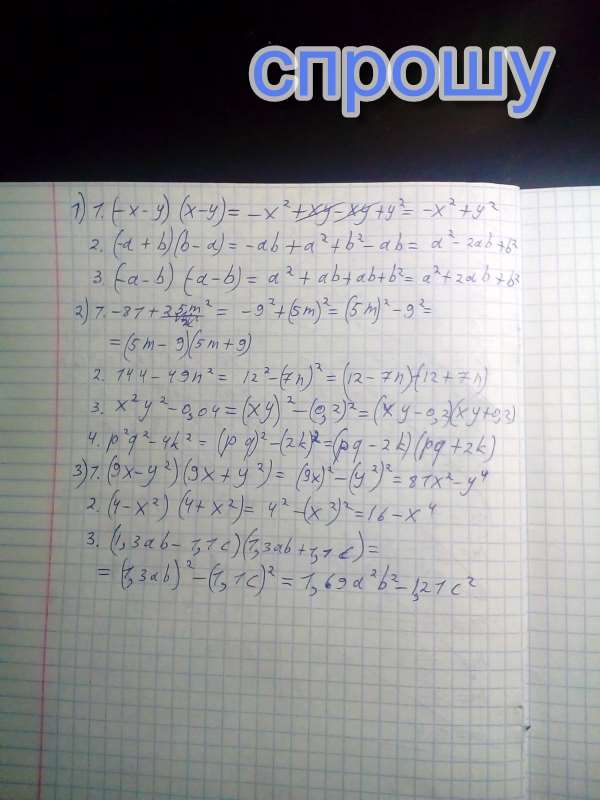 спрошу
1) 1. (-x-y) (x-y) = -x² + xy - xy + y² = -x² + y²
2. (-a + b)(b - a) = -ab + a² + b² - ab = a² - 2ab + b²
3. (-a - b) (-a - b) = a² + ab + ab + b² = a² + 2ab + b²
2) 1. -81 + 25m² = -9² + (5m)² = (5m)² - 9² =
= (5m - 9)(5m + 9)
2. 144 - 49n² = 12² - (7n)² = (12 - 7n) (12 + 7n)
3. x²y² - 0,04 = (xy)² - (0,2)² = (xy - 0,2)(xy + 0,2)
4. p²q² - 4k² = (pq)² - (2k)² = (pq - 2k)(pq + 2k)
3) 1. (9x - y²) (9x + y²) = (9x)² - (y²)² = 81x² - y⁴
2. (4 - x²) (4 + x²) = 4² - (x²)² = 16 - x⁴
3. (1,3ab - 1,1c)(1,3ab + 1,1c) =
= (1,3ab)² - (1,1c)² = 1,69a²b² - 1,21c²